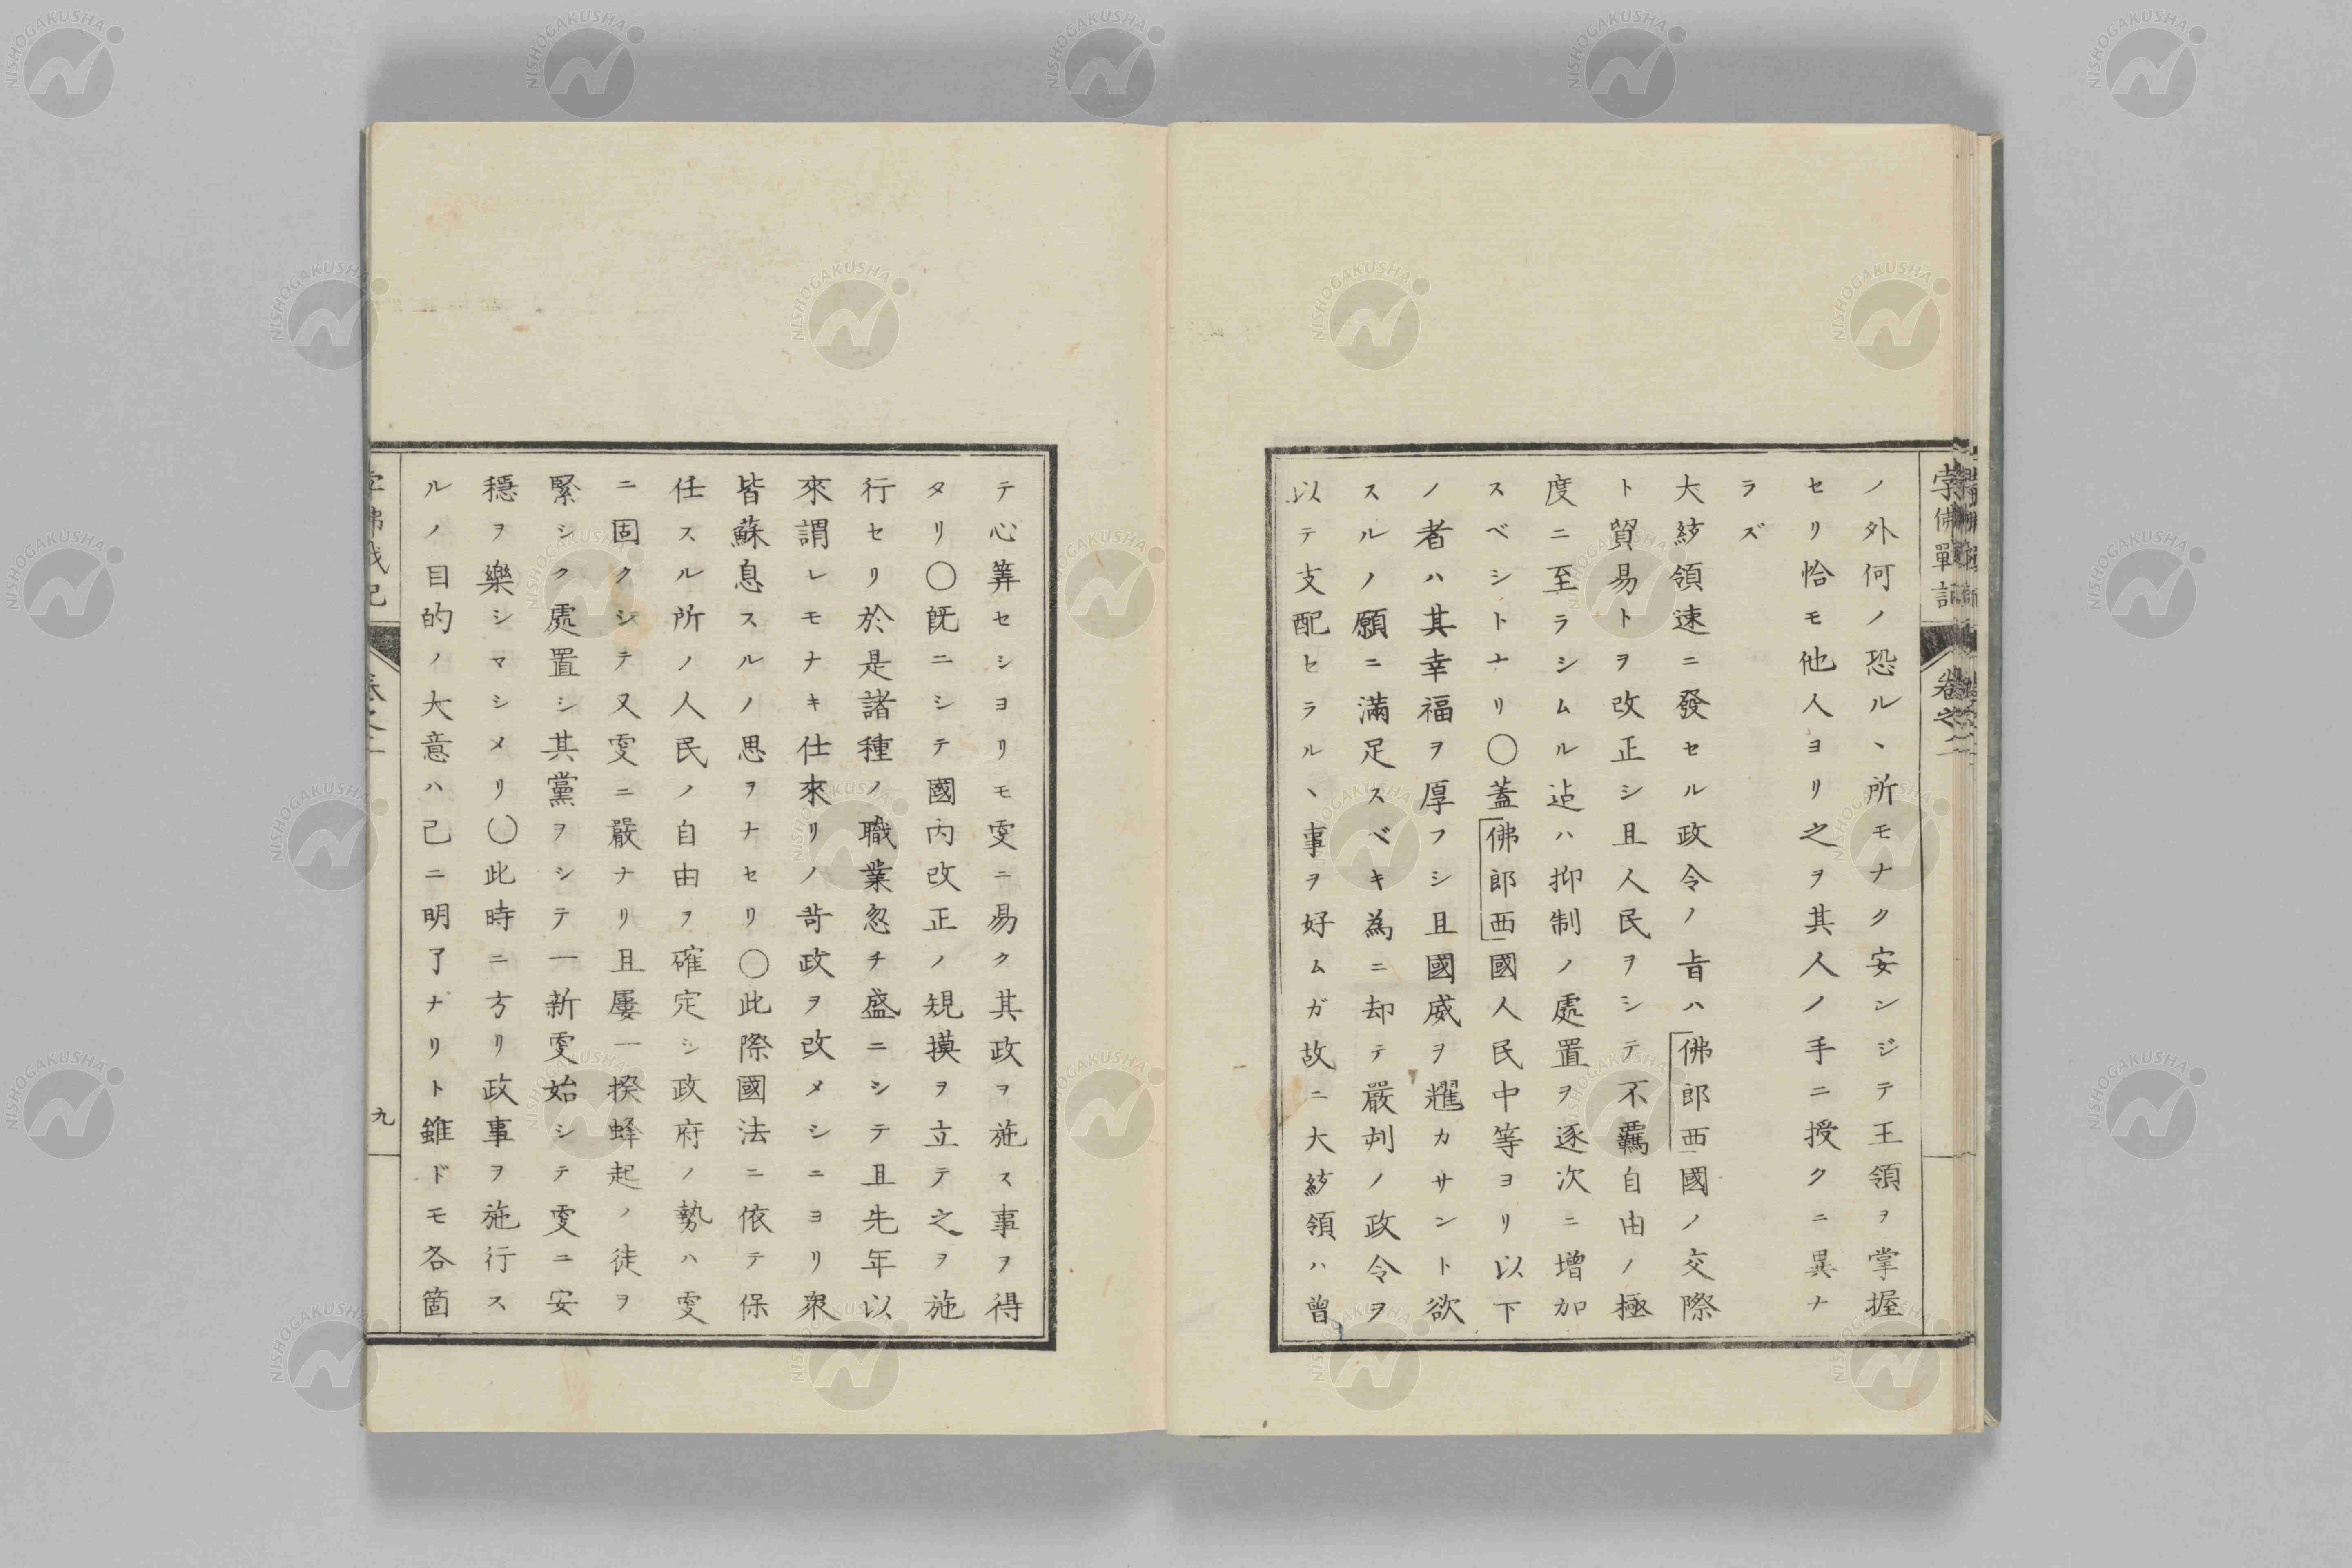 孛佛戰記
卷之二
ノ外何ノ恐ル丶所モナク安ンジテ王領ヲ掌握
セリ恰モ他人ヨリ之ヲ其人ノ手ニ授クニ異ナ
ラズ
大統領速ニ發セル政令ノ旨ハ佛郎西國ノ交際
ト貿易トヲ改正シ且人民ヲシテ不羈自由ノ極
度ニ至ラシムル迠ハ抑制ノ處置ヲ逐次ニ增加
スベシトナリ〇蓋佛郎西國人民中等ヨリ以下
ノ者ハ其幸福ヲ厚フシ且國威ヲ耀カサント欲
スルノ願ニ滿足スベキ為ニ却テ嚴刑ノ政令ヲ
以テ支配セラル丶事ヲ好ムガ故ニ大統領ハ曾
テ心筭セシヨリモ更ニ易ク其政ヲ施ス事ヲ得
タリ〇旣ニシテ國內改正ノ規摸ヲ立テ之ヲ施
行セリ於是諸種ノ職業忽チ盛ニシテ且先年以
來謂レモナキ仕來リノ苛政ヲ改メシニヨリ衆
皆蘇息スルノ思ヲナセリ〇此際國法ニ依テ保
任スル所ノ人民ノ自由ヲ確定シ政府ノ勢ハ更
ニ固クシテ又更ニ嚴ナリ且屢一揆蜂起ノ徒ヲ
緊シク處置シ其黨ヲシテ一新更始シテ更ニ安
穩ヲ樂シマシメリ〇此時ニ方リ政事ヲ施行ス
ルノ目的ノ大意ハ己ニ明了ナリト雖ドモ各箇
九
NISHOGAKUSHA